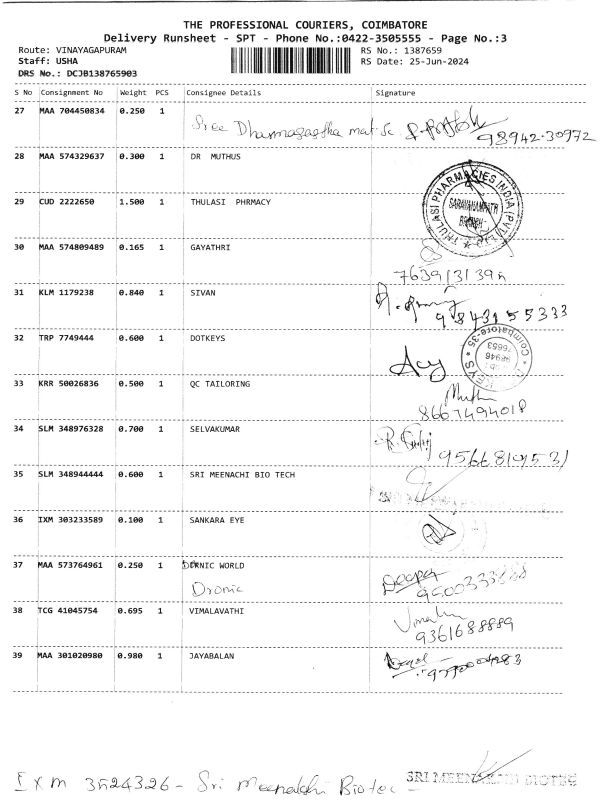 THE PROFESSIONAL COURIERS, COIMBATORE
Delivery Runsheet - SPT - Phone No.:0422-3505555 - Page No.:3
Route: VINAYAGAPURAM RS No.: 1387659
Staff: USHA RS Date: 25-Jun-2024
DRS No.: DCJB138765903
S No Consignment No Weight PCS Consignee Details Signature
27 MAA 704450834 0.250 1 Sree Dharmasastha mat.Sc
98942-30972
28 MAA 574329637 0.300 1 DR MUTHUS
29 CUD 2222650 1.500 1 THULASI PHRMACY
THULASI PHARMACIES INDIA (PVT)
SARAVANAMPATTI
BRANCH
30 MAA 574809489 0.165 1 GAYATHRI
31 KLM 1179238 0.840 1 SIVAN
9843155333
32 TRP 7749444 0.600 1 DOTKEYS
Coimbatore-35
KEYS
33 KRR 50026836 0.500 1 QC TAILORING
8667494018
34 SLM 348976328 0.700 1 SELVAKUMAR
35 SLM 348944444 0.600 1 SRI MEENACHI BIO TECH
36 IXM 303233589 0.100 1 SANKARA EYE
37 MAA 573764961 0.250 1 DRNIC WORLD
Dronic
Deepa
38 TCG 41045754 0.695 1 VIMALAVATHI
Vimala
9361688889
39 MAA 301020980 0.980 1 JAYABALAN
IXM 3524326 - Sri Meenakshi Biotec SRI MEENAKSHI BIOTEC